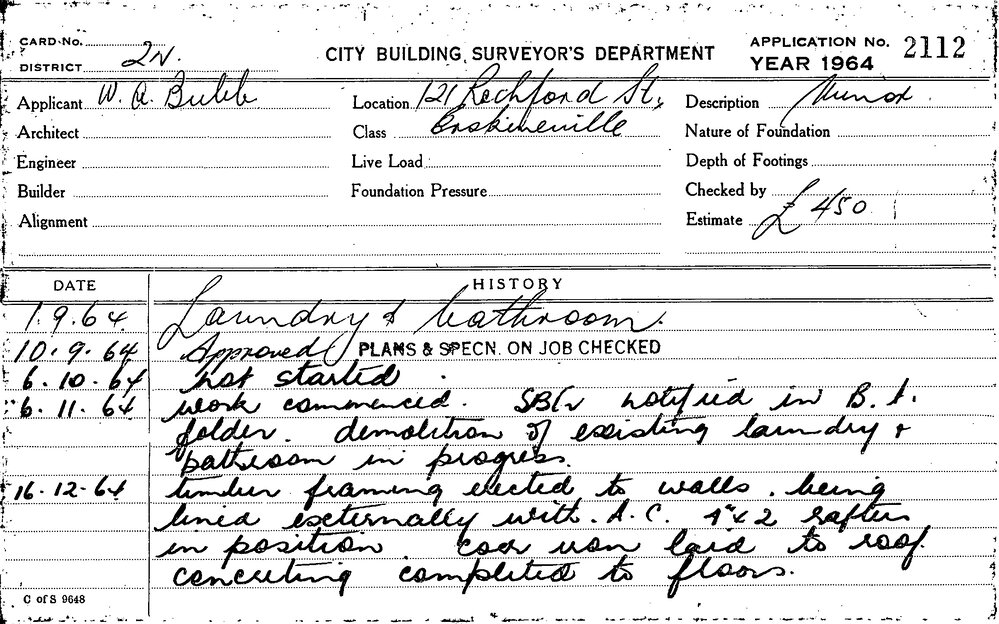 CARD No.
DISTRICT 2N.
CITY BUILDING SURVEYOR'S DEPARTMENT
APPLICATION No. 2112
YEAR 1964
Applicant W. A. Bubb
Location 121 Rochford St,
Description Minor
Architect
Class Erskineville
Nature of Foundation
Engineer
Live Load
Depth of Footings
Builder
Foundation Pressure
Checked by
Alignment
Estimate £450
DATE HISTORY
1.9.64 Laundry & bathroom.
10.9.64 Approved PLANS & SPECN. ON JOB CHECKED
6.10.64 not started.
6.11.64 work commenced. notified in B.A.
folder. demolition of existing laundry &
bathroom in progress.
16.12.64 timber framing erected to walls. being
lined externally with. A.C. 4"x2 rafters
in position. iron laid to roof
concreting completed to floors.
C of S 9648